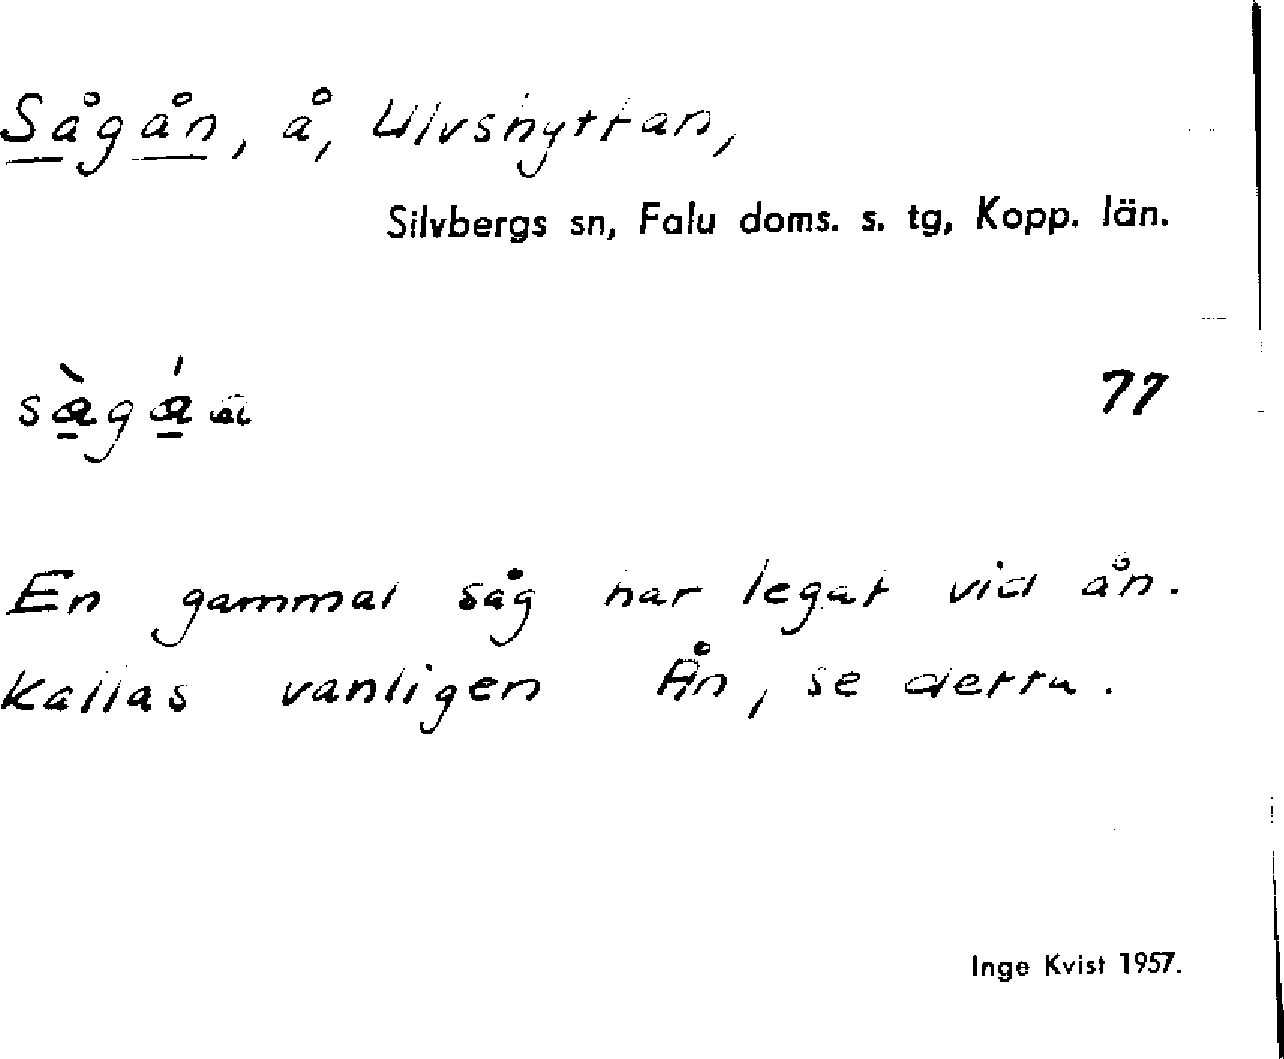 Sågån, å, Ulvshyttan,
Silvbergs sn, Falu doms. s. tg, Kopp. län.
77
En gammal såg har legat vid ån.
Kallas vanligen Ån, se detta.
Inge Kvist 1957.